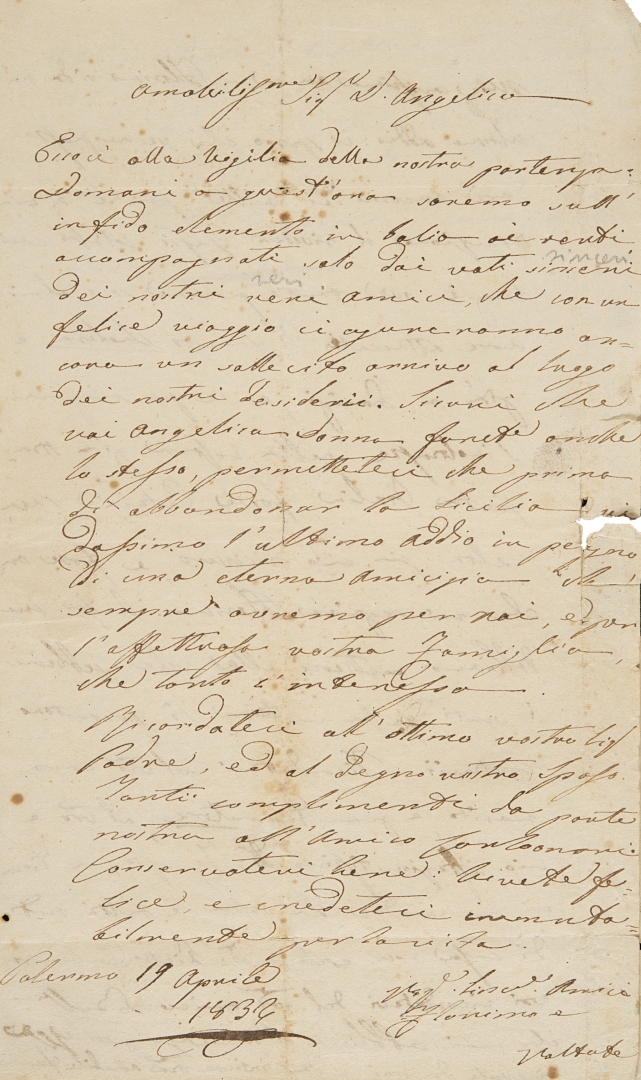 Amabilis.ma Sig.ra D. Angelica
Eccoci alla Vigilia della nostra partenza.
Domani a quest'ora saremo sull'
infido elemento in balia ai venti
accompagnati solo dai voti sinceri
sinceri
dei nostri veri amici, che con un
veri
felice viaggio ci agureranno an=
cora un sollecito arrivo al luogo
dei nostri desiderii. Sicuri che
voi Angelica Donna farete anche
lo stesso, permetteteci che prima
di abbandonar la Sicilia vi
dassimo l'ultimo addio in pegno
di una eterna amicizia che
sempre avremo per voi, e per
l'affettuosa vostra Famiglia,
che tanto c'interessa.
Ricordateci all'ottimo vostro Sig.
Padre, ed al degno vostro sposo.
Tanti complimenti da parte
nostra all'Amico
Conservatevi bene: vivete fe=
lice, e credeteci immuta=
bilmente per la vita.
Palermo 19 Aprile
1832
Amici
e
Voltate